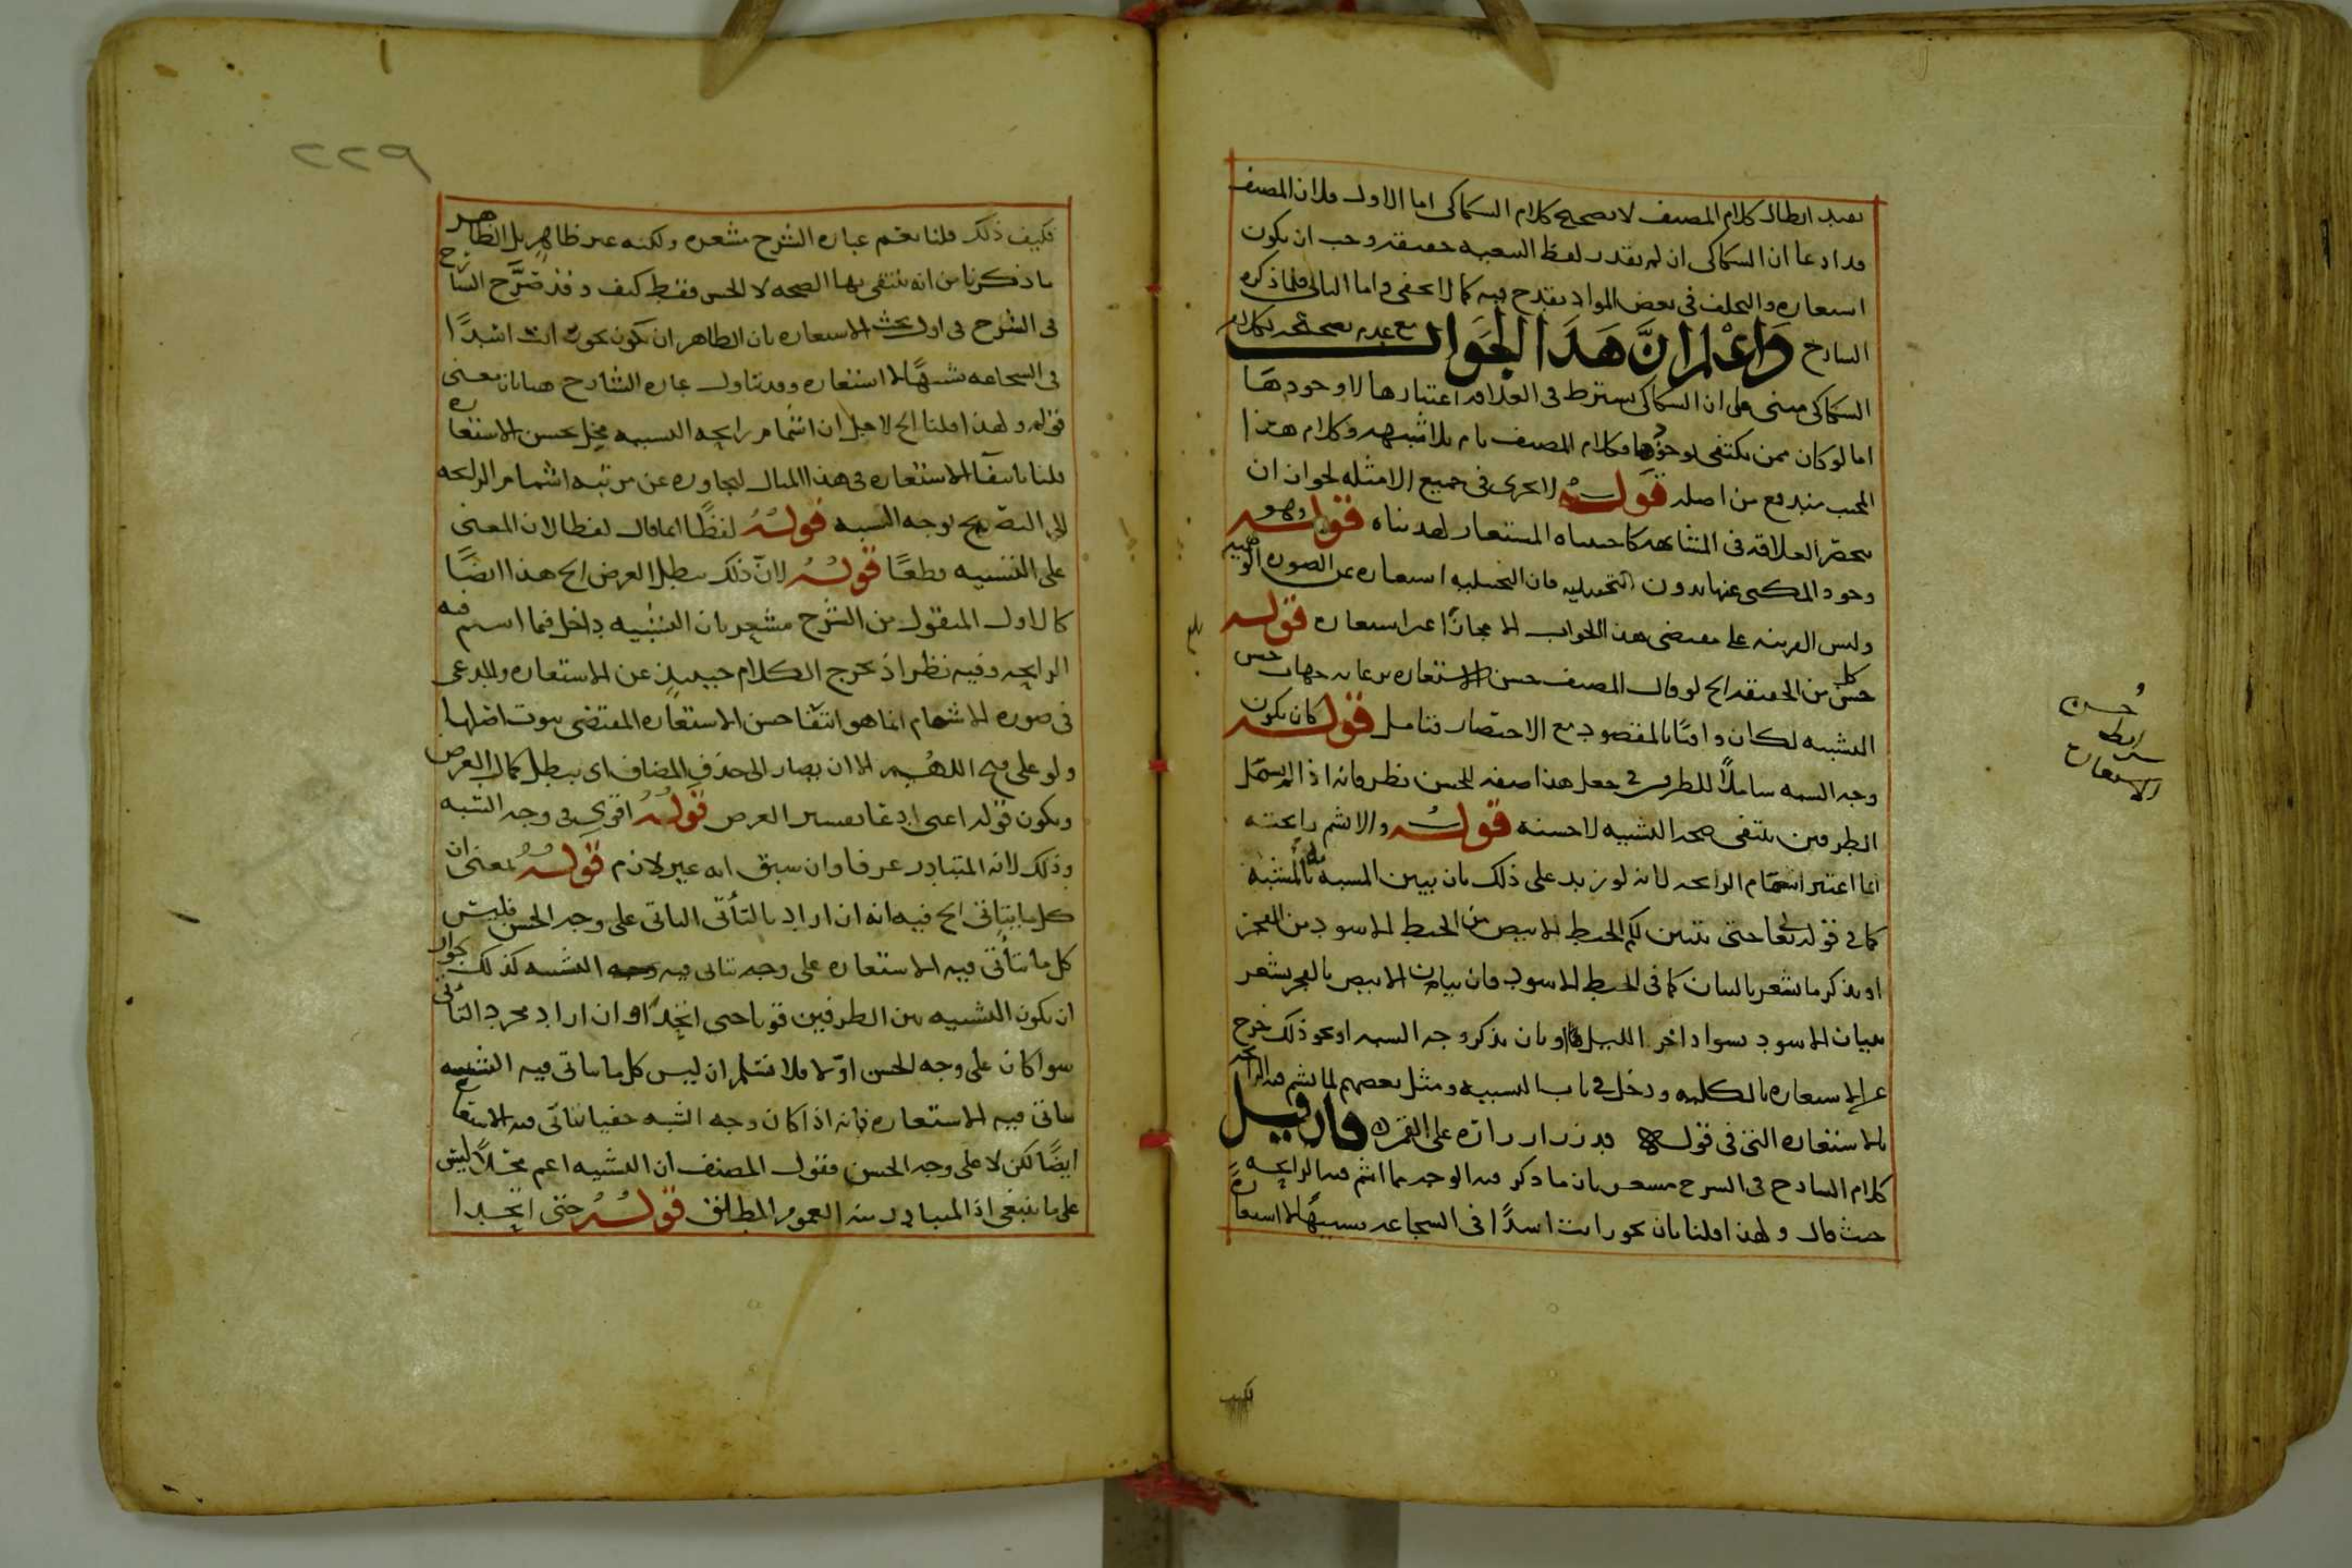 يفيد ابطال كلام المصنف لا تصحيح كلام السكاكى اما الاول فلان المصنف
قد ادعا ان السكاكى ان لم يقدر لفظ الشعبه حقيقة وجب ان يكون
استعاره والتخلف فى بعض المواد يقدح فيه كما لا يخفى واما الثانى فلما ذكره
الشارح وَاعْلَم انَّ هَذَا الجَوَاب مع عدم تصحيحه لكلام
السكاكى مبنى على ان السكاكى يشترط فى العلاقه اعتبارها لا وجودها
اما لو كان ممن يكتفى بوجودها فكلام المصنف تام بلا شبهه وكلام هذا
المجيب مندفع من اصله قوله لا يجرى فى جميع الامثله لجواز ان
ينحصر العلاقه فى المشابهه كاحساه المستعار لهدساه قوله وهو
وجود المكنى عنها بدون التخييليه فان التخييليه استعاره عن الصوره الوهميه
وليس القرينه على مقتضى هذا الجواب الا مجازًا غير استعاره قوله
حسن كل من الحقيقه الخ لو قال المصنف حسن الاستعاره برعايه جهات حسن
التشبيه لكان وافيًا بالمقصود مع الاختصار فتامل قوله كان يكون
وجه الشبه شاملًا للطرفين فى جعل هذا صفه للحسن نظر فانه اذا لم يشمل
الطرفين ينتفى صحه التشبيه لا حسنه قوله والا يشم رايحته
انما اعتبر اشمام الرايحه لانه لو زيد على ذلك بان يبين المشبه بالمشبه به
كما فى قوله تعا حتى يتبين لكم الخيط الابيض من الخيط الاسود من الفجر
او يذكر ما يشعر بالبيان كما فى الخيط الاسود فان بيان الابيض بالفجر يشعر
ببيان الاسود بسواد اخر الليل او بان يذكر وجه الشبه او نحو ذلك خرج
عن الاستعاره بالكليه ودخل فى باب التشبيه ومثل بعضهم لما يشم فيه الرايحه
بالاستعاره التى فى قوله قد زر ازراره على القمر فان قيل
كلام الشارح فى الشرح مشعر بان ما ذكر فيه الوجه مما اشم فيه الرايحه
حيث قال ولهذا قلنا بان نحو رايت اسدًا فى الشجاعه تشبيهًا لا استعارة
حسن
شرايط
الاستعارة
فكيف
٢٢٩
فكيف ذلك قلنا نعم عباره الشرح مشعره ولكنه غير ظاهر بل الظاهر
ما ذكرنا من انه ينتفى بها الصحه لا الحسن فقط كيف وقد صَرَّح الشارح
فى الشرح فى اول بحث الاستعاره بان الظاهر ان يكون نحو رايت اسدًا
فى الشجاعه تشبيهًا لا استعاره وقد تناول عباره الشارح هنا بان معنى
قوله ولهذا قلنا الخ لاجل ان اشمام رايحه التشبيه مخل بحسن الاستعاره
قلنا بانتفا الاستعاره فى هذا المثال ليجاوره عن مرتبه اشمام الرايحه
الى التصريح بوجه الشبه قوله لفظًا انما قال لفظا لان المعنى
على التشبيه قطعًا قوله لانّ ذلك يبطل الغرض الخ هذا ايضًا
كالاول المنقول من الشرح مشعر بان التشبيه داخل فيما اشم فيه
الرايحه وفيه نظر اذ يخرج الكلام حينيذ عن الاستعاره والمدعى
فى صوره الاشمام انما هو انتفا حسن الاستعاره المقتضى ثبوت اصلها
ولو على قبح اللهم الا ان يصار الى حذف المضاف اى يبطل كمال الغرض
ويكون قوله اعنى ادعا تفسير الغرض قوله اقوى فى وجه الشبه
وذلك لانه المتبادر عرفا وان سبق انه غير لازم قوله بمعنى ان
كل ما يتاتى الخ فيه انه ان اراد بالتأتى التاتى على وجه الحسن فليس
كل ما يتأتى فيه الاستعاره على وجه يتاتى فيه التشبيه كذلك لجواز
ان يكون التشبيه بين الطرفين قويا حتى اتحدا وان اراد مجرد التأتى
سوا كان على وجه الحسن او لا فلا نسلم ان ليس كل ما يتاتى فيه التشبيه
يتاتى فيه الاستعاره فانه اذا كان وجه الشبه خفيا يتأتى فيه الاستعاره
ايضًا لكن لا على وجه الحسن فقول المصنف ان التشبيه اعم محلًا ليس
على ما ينبغى اذ المتبادر منه العموم المطلق قوله حتى اتحدا